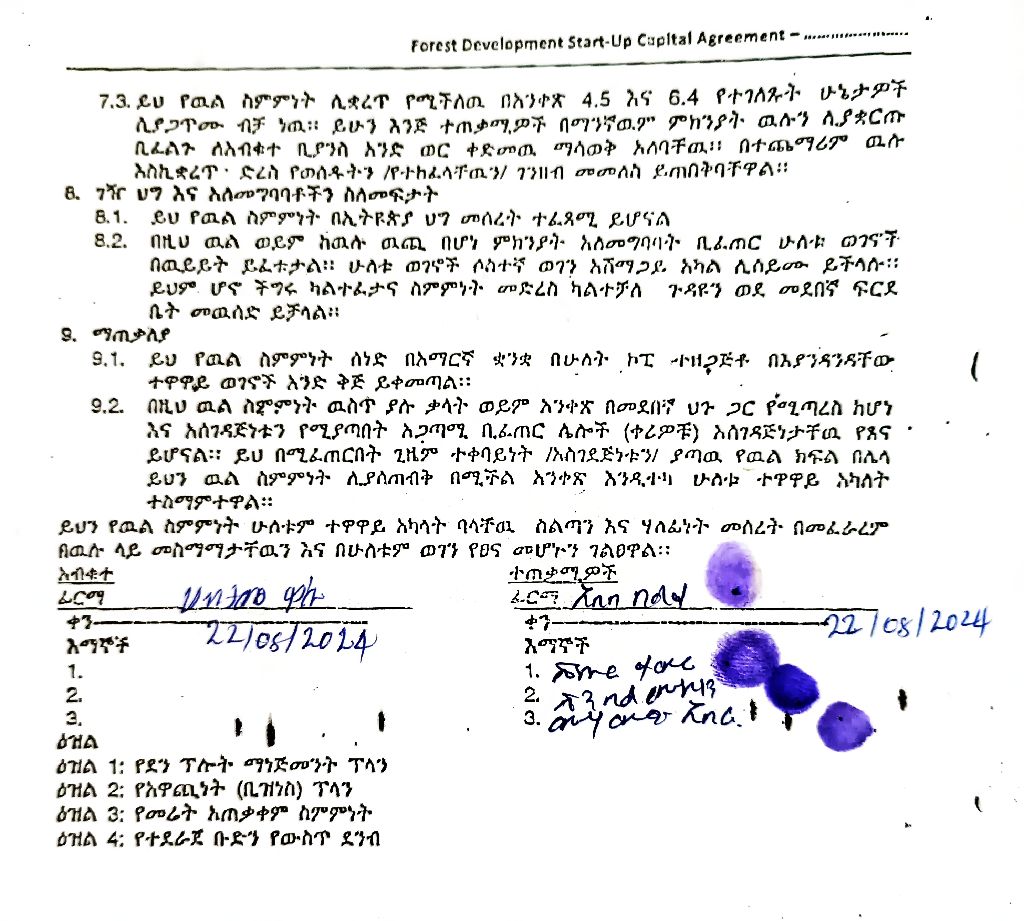 Forest Development Start-Up Capital Agreement – ........................
7.3. ይህ የዉል ስምምነት ሊቋረጥ የሚችለዉ በአንቀጽ 4.5 እና 6.4 የተገለጹት ሁኔታዎች
ሲያጋጥሙ ብቻ ነዉ፡፡ ይሁን እንጅ ተጠቃሚዎች በማንኛዉም ምክንያት ዉሉን ሊያቋርጡ
ቢፈልጉ ለአብቁተ ቢያንስ አንድ ወር ቀድመዉ ማሳወቅ አለባቸዉ፡፡ በተጨማሪም ዉሉ
እስኪቋረጥ ድረስ የወሰዱትን /የተከፈላቸዉን/ ገንዘብ መመለስ ይጠበቅባቸዋል፡፡
8. ገዥ ህግ እና አለመግባባቶችን ስለመፍታት
8.1. ይህ የዉል ስምምነት በኢትዩጵያ ህግ መሰረት ተፈጻሚ ይሆናል
8.2. በዚህ ዉል ወይም ከዉሉ ዉጪ በሆነ ምክንያት አለመግባባት ቢፈጠር ሁለቱ ወገኖች
በዉይይት ይፈቱታል፡፡ ሁለቱ ወገኖች ሶስተኛ ወገን አሸማጋይ አካል ሊሰይሙ ይችላሉ፡፡
ይህም ሆኖ ችግሩ ካልተፈታና ስምምነት መድረስ ካልተቻለ ጉዳዩን ወደ መደበኛ ፍርደ
ቤት መዉሰድ ይቻላል፡፡
9. ማጠቃለያ
9.1. ይህ የዉል ስምምነት ሰነድ በአማርኛ ቋንቋ በሁለት ኮፒ ተዘጋጅቶ በእያንዳንዳቸው
ተዋዋይ ወገኖች አንድ ቅጅ ይቀመጣል፡፡
9.2. በዚህ ዉል ስምምነት ዉስጥ ያሉ ቃላት ወይም አንቀጽ በመደበኛ ህጉ ጋር የሚጣረስ ከሆነ
እና አሰገዳጅነቱን የሚያጣበት አጋጣሚ ቢፈጠር ሌሎች (ቀሪዎቹ) አሰገዳጅነታቸዉ የጸና
ይሆናል፡፡ ይህ በሚፈጠርበት ጊዜም ተቀባይነት /አስገደጅነቱን/ ያጣዉ የዉል ክፍል በሌላ
ይህን ዉል ስምምነት ሊያስጠብቅ በሚችል አንቀጽ እንዲተካ ሁለቱ ተዋዋይ አካለት
ተስማምተዋል፡፡
ይህን የዉል ስምምነት ሁለቱም ተዋዋይ አካላት ባላቸዉ ስልጣን እና ሃለፊነት መሰረት በመፈራረም
በዉሉ ላይ መስማማታቸዉን እና በሁለቱም ወገን የፀና መሆኑን ገልፀዋል፡፡
አብቁተ
ፊርማ
ቀን 22/08/2024
እማኞች
1.
2.
3.
ተጠቃሚዎች
ፊርማ
ቀን 22/08/2024
እማኞች
1.
2.
3.
ዕዝል
ዕዝል 1: የደን ፕሎት ማነጅመንት ፕላን
ዕዝል 2: የአዋጪነት (ቢዝነስ) ፕላን
ዕዝል 3: የመሬት አጠቃቀም ስምምነት
ዕዝል 4: የተደራጀ ቡድን የውስጥ ደንብ